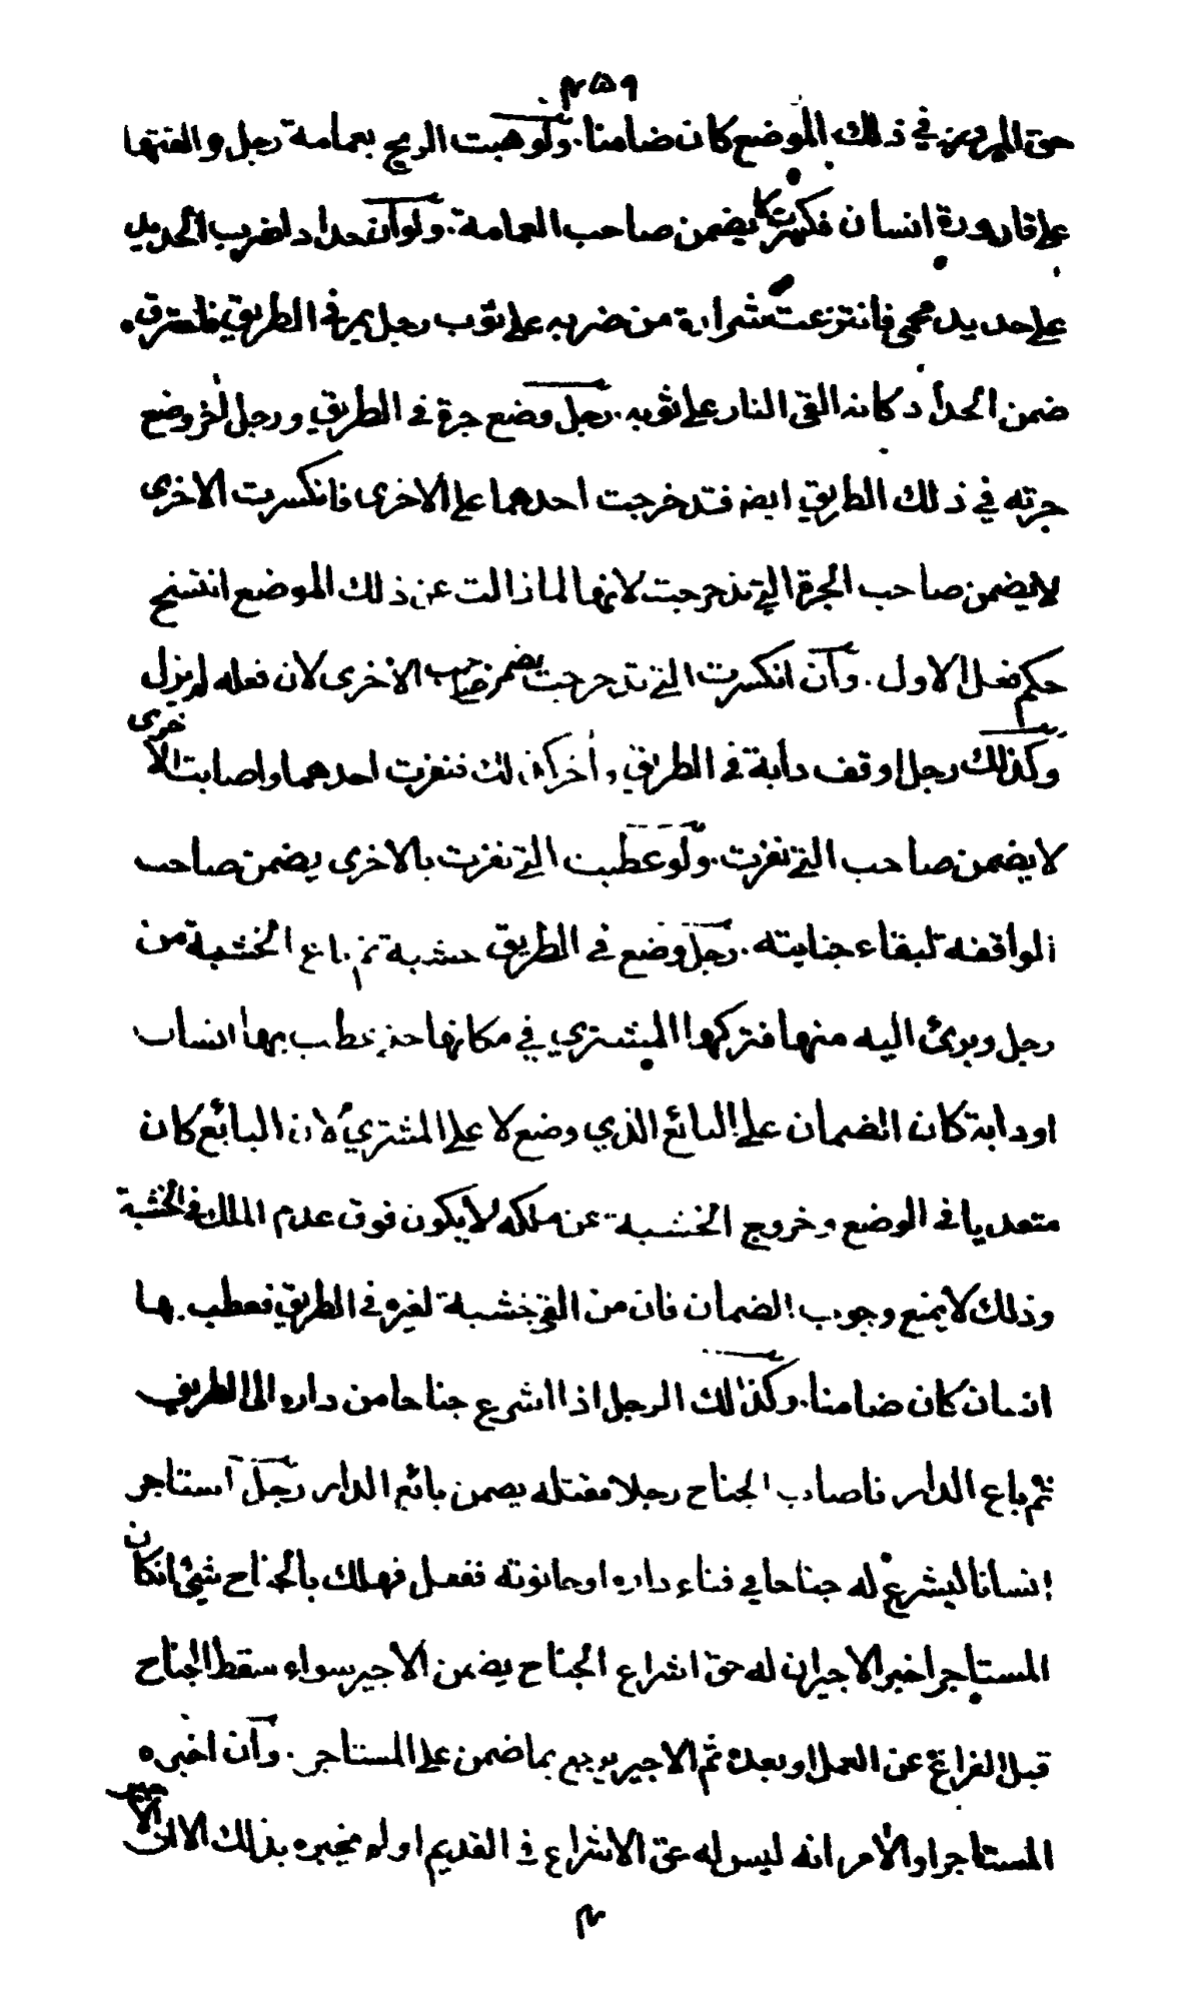 ٤٥٩
حق المرور في ذلك الموضع كان ضامنا. ولو هبت الريح بعمامة رجل والقتها
على قارورة انسان فكسرت لا يضمن صاحب العمامة. ولو ان حدادا ضرب الحديد
على حديد محمى فانتزعت شرارة من ضربه على ثوب رجل يمر في الطريق فاحترق
ضمن الحداد كانه القى النار على ثوبه. رجل وضع جرة في الطريق ورجل اخر وضع
جرته في ذلك الطريق ايضا فتدحرجت احدهما على الاخرى فانكسرت الاخرى
لا يضمن صاحب الجرة التي تدحرجت لانها لما زالت عن ذلك الموضع انتسخ
حكم فعل الاول. وان انكسرت التي تدحرجت يضمن صاحب الاخرى لان فعله لم يزل
وكذلك رجل اوقف دابة في الطريق واخر كذلك فنفرت احدهما واصابت الاخرى
لا يضمن صاحب التي نفرت. ولو عطبت التي نفرت بالاخرى يضمن صاحب
الواقفة لبقاء جنايته. رجل وضع في الطريق خشبة ثم باع الخشبة من
رجل وبرئ اليه منها فتركها المشتري في مكانها حتى عطب بها انسان
او دابة كان الضمان على البائع الذي وضع لا على المشتري لان البائع كان
متعديا في الوضع وخروج الخشبة عن ملكه لا يكون فوق عدم الملك في الخشبة
وذلك لا يمنع وجوب الضمان فان من القى خشبة لغيره في الطريق فعطب بها
انسان كان ضامنا. وكذلك الرجل اذا اشرع جناحا من داره الى الطريق
ثم باع الدار فاصاب الجناح رجلا فقتله يضمن بائع الدار رجل استاجر
انسانا ليشرع له جناحا في فناء داره او حانوته ففعل فهلك بالجناح شيئ ان كان
المستاجر اخبر الاجير ان له حق اشراع الجناح يضمن الاجير سواء سقط الجناح
قبل الفراغ عن العمل او بعده ثم الاجير يرجع بما ضمن على المستاجر. وان اخبره
المستاجر او الامر انه ليس له حق الاشراع في القديم او لم يخبره بذلك الا ان الاجير